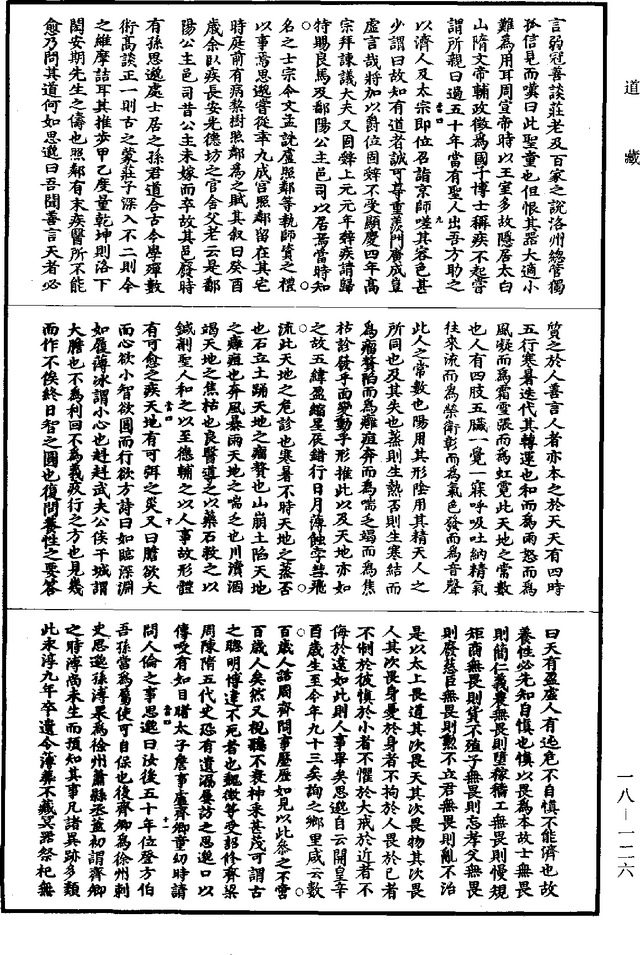 道藏
言弱冠善談莊老及百家之說洛州總管獨
孤信見而嘆曰此聖童也但恨其器大適小
難為用耳周宣帝時以王室多故隱居太白
山隋文帝輔政徵為國子博士稱疾不起嘗
謂所親曰過五十年當有聖人出吾方助之
以濟人及太宗即位召詣京師嗟其容色甚
少謂曰故知有道者誠可尊重羨門廣成豈
虛言哉將加以爵位固辭不受顯慶四年高
宗拜諫議大夫又固辭上元元年辭疾請歸
特賜良馬及鄱陽公主邑司以居焉當時知
名之士宋令文孟詵盧照鄰等執師資之禮
以事焉思邈嘗從幸九成宮照鄰留在其宅
時庭前有病梨樹照鄰為之賦其叙曰癸酉
歲余臥疾長安光德坊之官舍父老云是鄱
陽公主邑司昔公主未嫁而卒故其邑廢時
有孫思邈處士居之孫君道合古今學殫數
術高談正一則古之蒙莊子深入不二則今
之維摩詰耳其推步甲乙度量乾坤則洛下
閎安期先生之儔也照鄰有末疾醫所不能
愈乃問其道何如思邈曰吾聞善言天者必
質之於人善言人者亦本之於天天有四時
五行寒暑迭代其轉運也和而為雨怒而為
風凝而為霜雪張而為虹霓此天地之常數
也人有四肢五臟一覺一寐呼吸吐納精氣
往來流而為榮衛彰而為氣色發而為音聲
此人之常數也陽用其形陰用其精天人之
所同也及其失也蒸則生熱否則生寒結而
為瘤贅陷而為癰疽奔而為喘乏竭而為焦
枯診發乎面變動乎形推此以及天地亦如
之故五緯盈縮星辰錯行日月薄蝕孛彗飛
流此天地之危診也寒暑不時天地之蒸否
也石立土踊天地之瘤贅也山崩土陷天地
之癰疽也奔風暴雨天地之喘乏也川瀆涸
竭天地之焦枯也良醫導之以藥石救之以
鍼劑聖人和之以至德輔之以人事故形體
有可愈之疾天地有可弭之災又曰膽欲大
而心欲小智欲圓而行欲方詩曰如臨深淵
如履薄冰謂小心也赳赳武夫公侯干城謂
大膽也不為利回不為義疚行之方也見幾
而作不俟終日智之圓也復問養性之要答
曰天有盈虛人有迍危不自慎不能濟也故
養性必先知自慎也慎以畏為本故士無畏
則簡仁義農無畏則墮稼穡工無畏則慢規
矩商無畏則貨不殖子無畏則忘孝父無畏
則廢慈臣無畏則勳不立君無畏則亂不治
是以太上畏道其次畏天其次畏物其次畏
人其次畏身憂於身者不拘於人畏於己者
不制於彼慎於小者不懼於大戒於近者不
侮於遠如此則人事畢矣思邈自云開皇辛
酉歲生至今年九十三矣詢之鄉里咸云數
百歲人話周齊間事歷歷如見以此參之不啻
百歲人矣然又視聽不衰神采甚茂可謂古
之聰明博達不死者也魏徵等受詔修齊梁
周陳隋五代史恐有遺漏屢訪之思邈口以
傳授有如目睹太子詹事盧齊卿童幼時請
問人倫之事思邈曰汝後五十年位登方伯
吾孫當為屬吏可自保也後齊卿為徐州刺
史思邈孫溥果為徐州蕭縣丞蓋初謂齊卿
之時溥尚未生而預知其事凡諸異跡多類
此永淳九年卒遺令薄葬不藏冥器祭祀無
一八—一二六